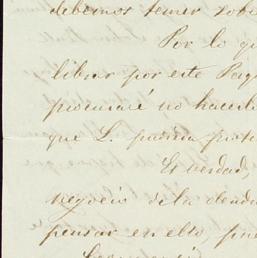 debemos temer sobr
Por lo qu
librar por este Paq
procuraré no hacerl
que L.
Es verdad,
negocio de la deuda
pensar en ello, pue